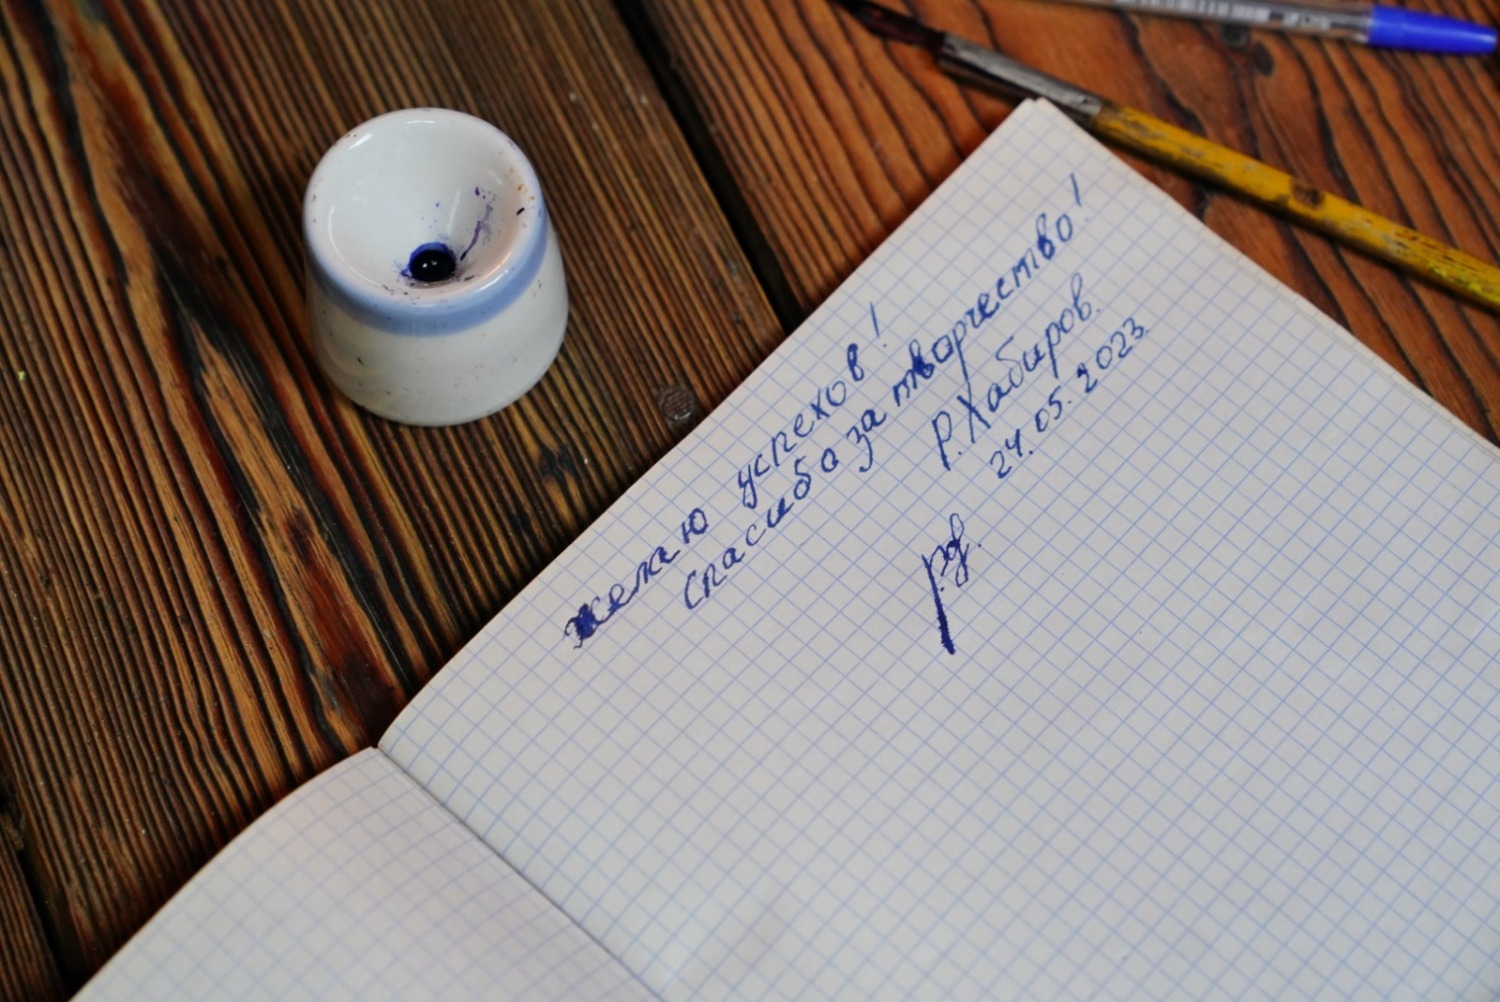 желаю успехов!
Спасибо за творчество!
Р. Хабиров.
24.05.2023.